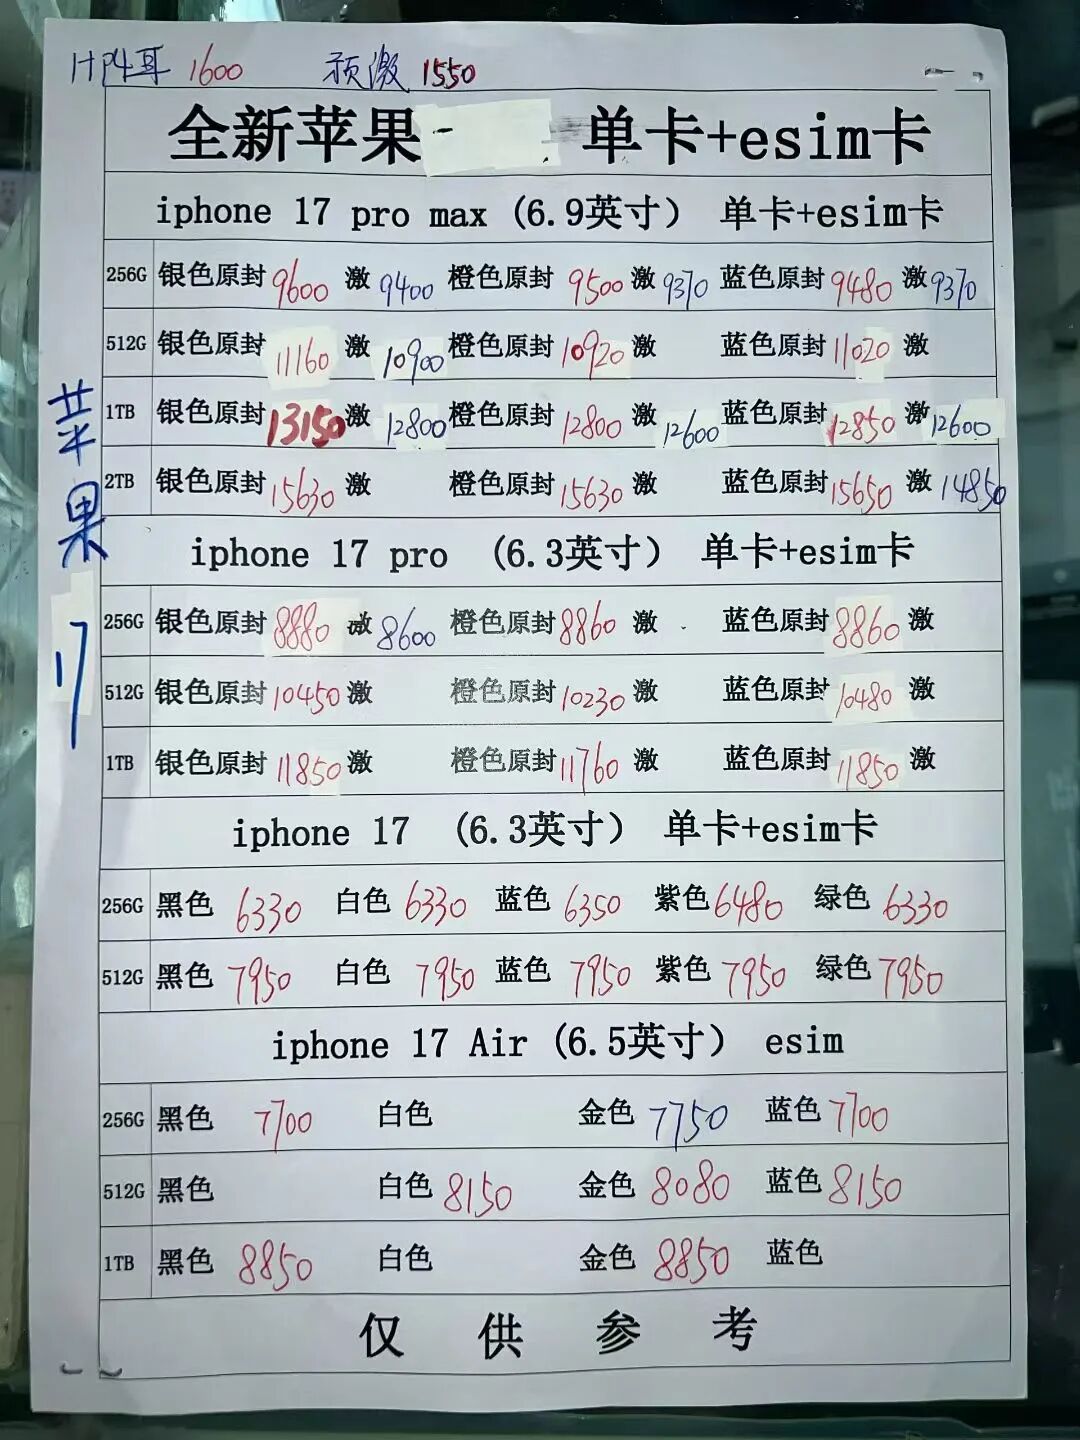 1600 预激 1550
全新苹果 单卡+esim卡
iphone 17 pro max (6.9英寸) 单卡+esim卡
256G 银色原封 9600 激 9400 橙色原封 9500 激 9370 蓝色原封 9480 激 9370
512G 银色原封 11160 激 10900 橙色原封 10920 激 蓝色原封 11020 激
1TB 银色原封 13150 激 12800 橙色原封 12800 激 12600 蓝色原封 12850 激 12600
2TB 银色原封 15630 激 橙色原封 15630 激 蓝色原封 15650 激 14850
苹果17
iphone 17 pro (6.3英寸) 单卡+esim卡
256G 银色原封 8880 激 8600 橙色原封 8860 激 蓝色原封 8860 激
512G 银色原封 10450 激 橙色原封 10230 激 蓝色原封 10480 激
1TB 银色原封 11850 激 橙色原封 11760 激 蓝色原封 11850 激
iphone 17 (6.3英寸) 单卡+esim卡
256G 黑色 6330 白色 6330 蓝色 6350 紫色 6480 绿色 6330
512G 黑色 7950 白色 7950 蓝色 7950 紫色 7950 绿色 7950
iphone 17 Air (6.5英寸) esim
256G 黑色 7700 白色 金色 7750 蓝色 7700
512G 黑色 白色 8150 金色 8080 蓝色 8150
1TB 黑色 8850 白色 金色 8850 蓝色
仅供参考